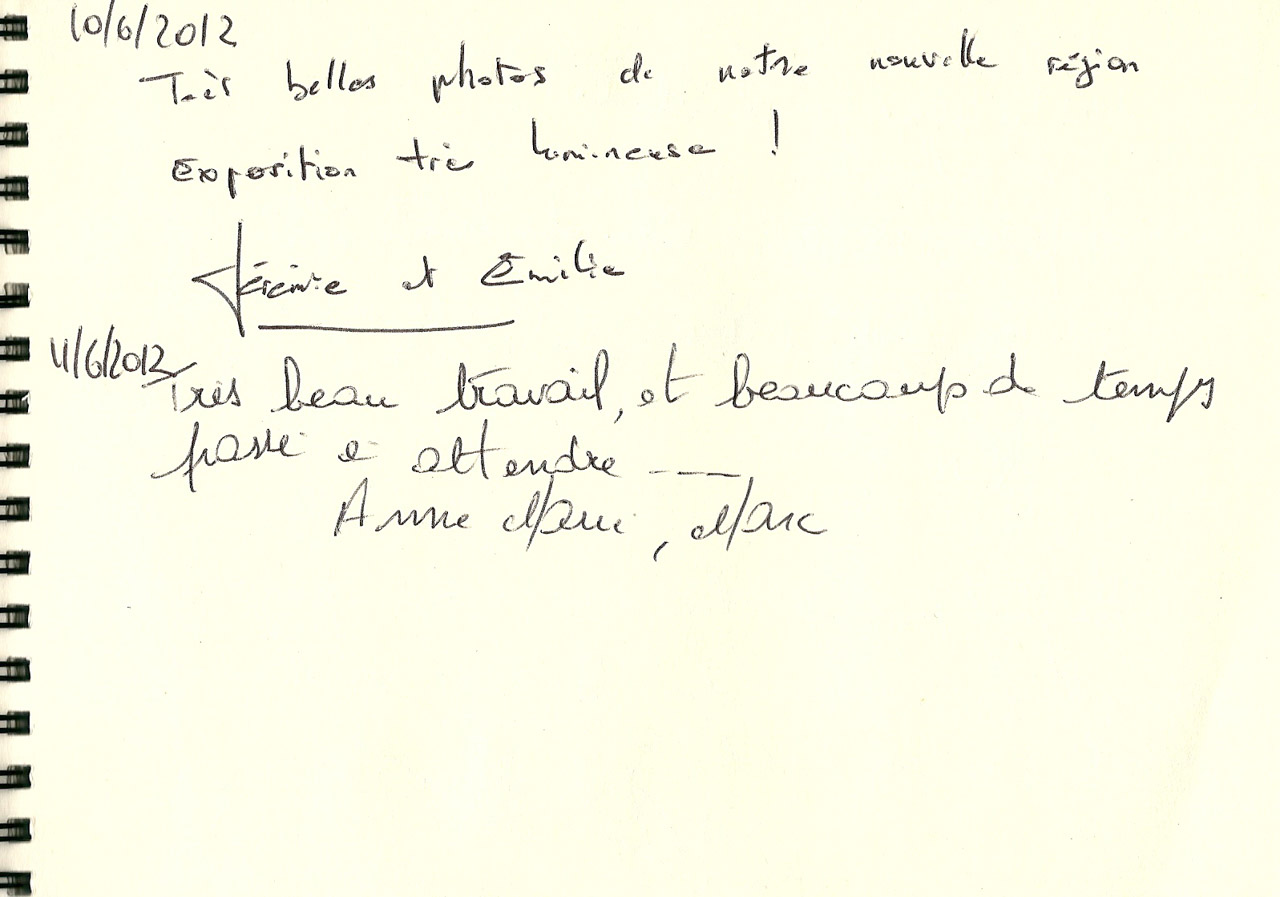 10/6/2012
Très belles photos de notre nouvelle région
Exposition très lumineuse !
Jérémie et Émilie
11/6/2012 Très beau travail, et beaucoup de temps
passé à attendre ----
Anne Marie, Marc